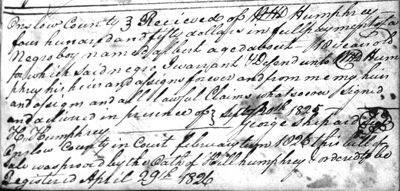 Onslow County } Recieved of Humphrey
four hundred and fifty dollars in full payment of a
Negro boy named aged about 18 years old
for which said negro I warrant & Defend unto Hum
phrey his heir and assigns forever and from me my heirs
and assigns and all lawful Claims whatsoever signed
and in presence of } 1825
H. Humphrey George Shepard
Onslow County in Court february term 1826 this bill of
Sale was proved by the Oath of Hill humphrey ordered to be
Registered April 29th 1826